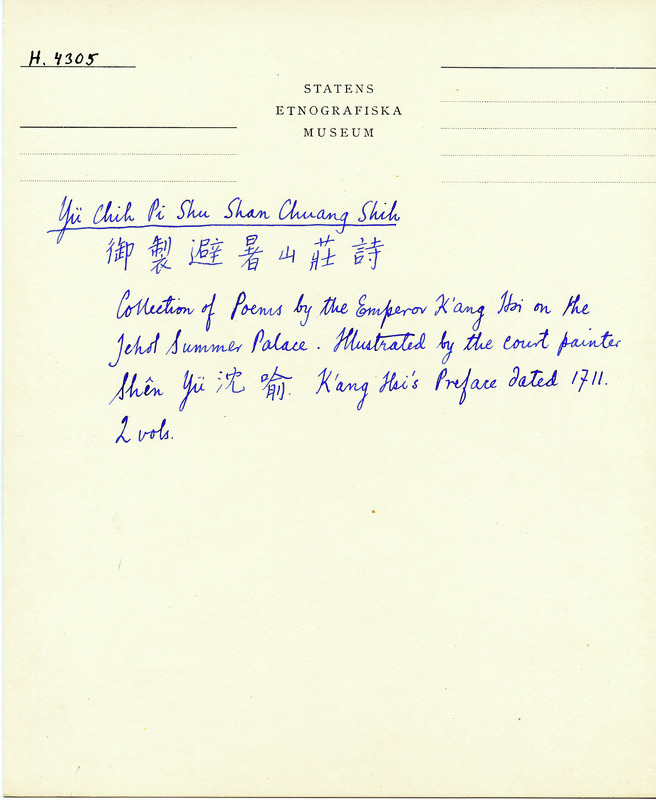 H. 4305
STATENS
ETNOGRAFISKA
MUSEUM
Yü Chih Pi Shu Shan Chuang Shih
御製避暑山莊詩
Collection of Poems by the Emperor K'ang Hsi on the
Jehol Summer Palace. Illustrated by the court painter
Shên Yü 沈喻. K'ang Hsi's Preface dated 1711.
2 vols.